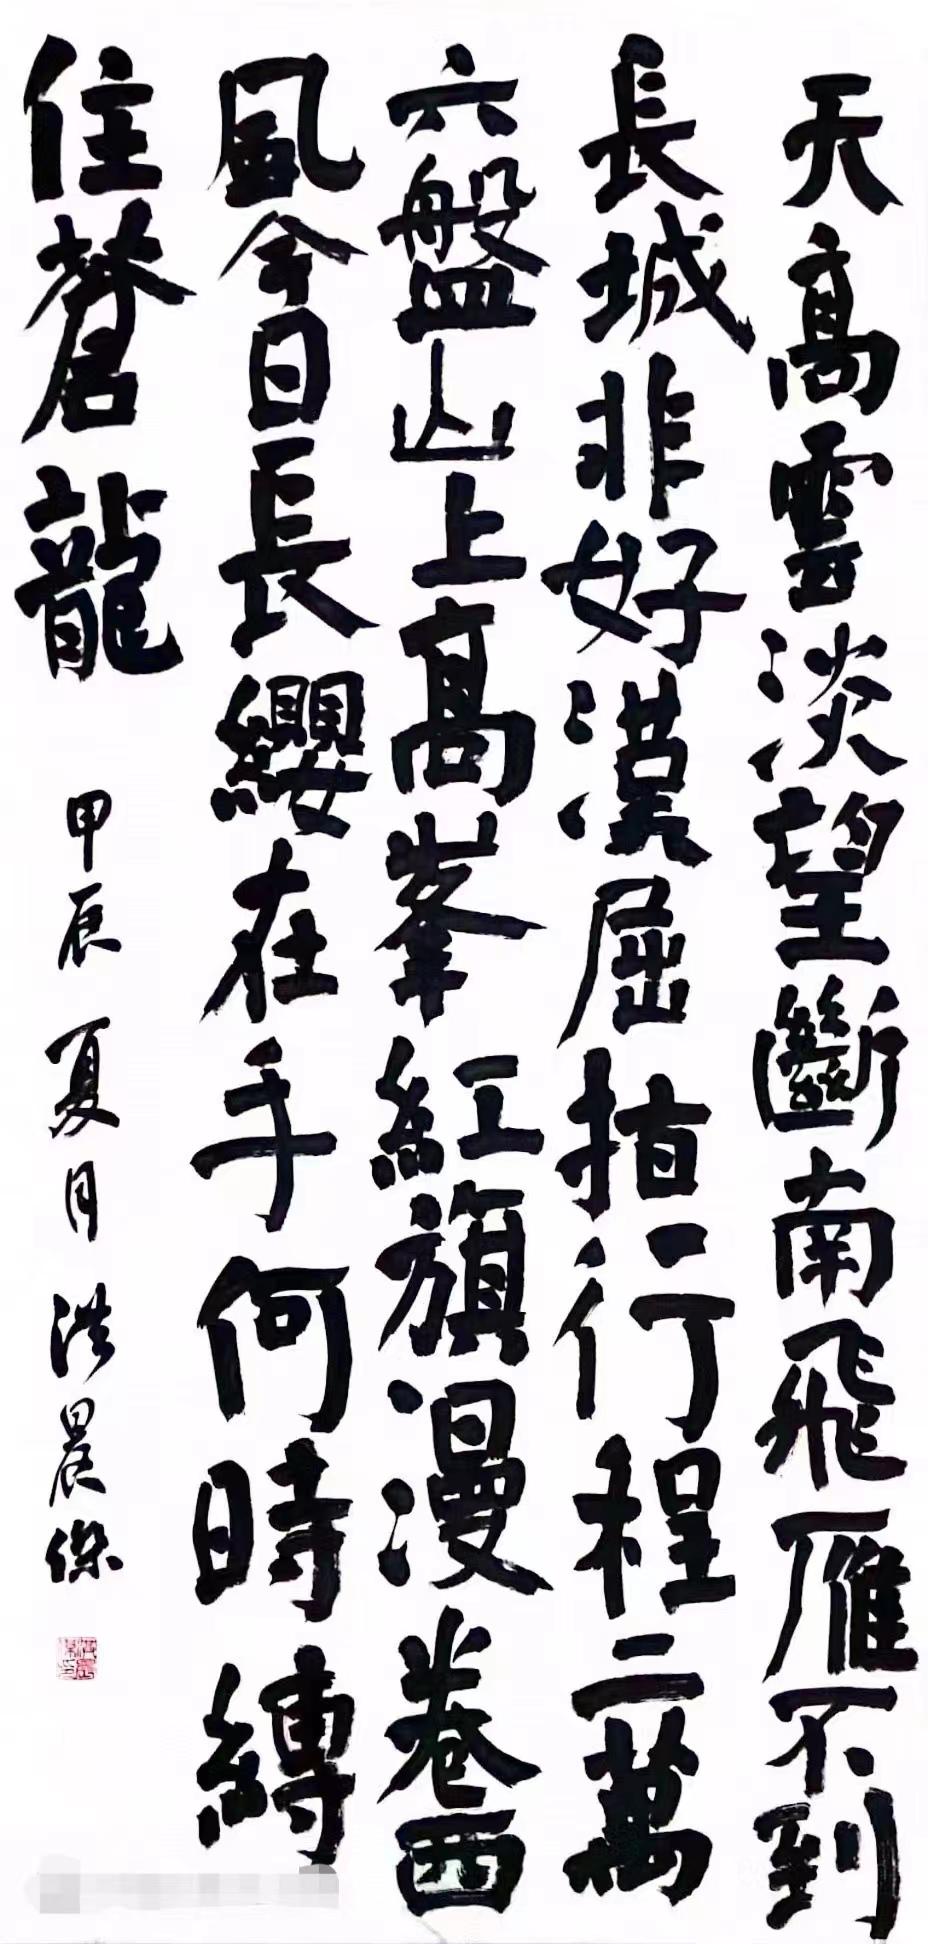 天高雲淡望斷南飛雁不到
長城非好漢屈指行程二萬
六盤山上高峯紅旗漫卷西
風今日長纓在手何時縛
住蒼龍
甲辰夏月洪晨傑